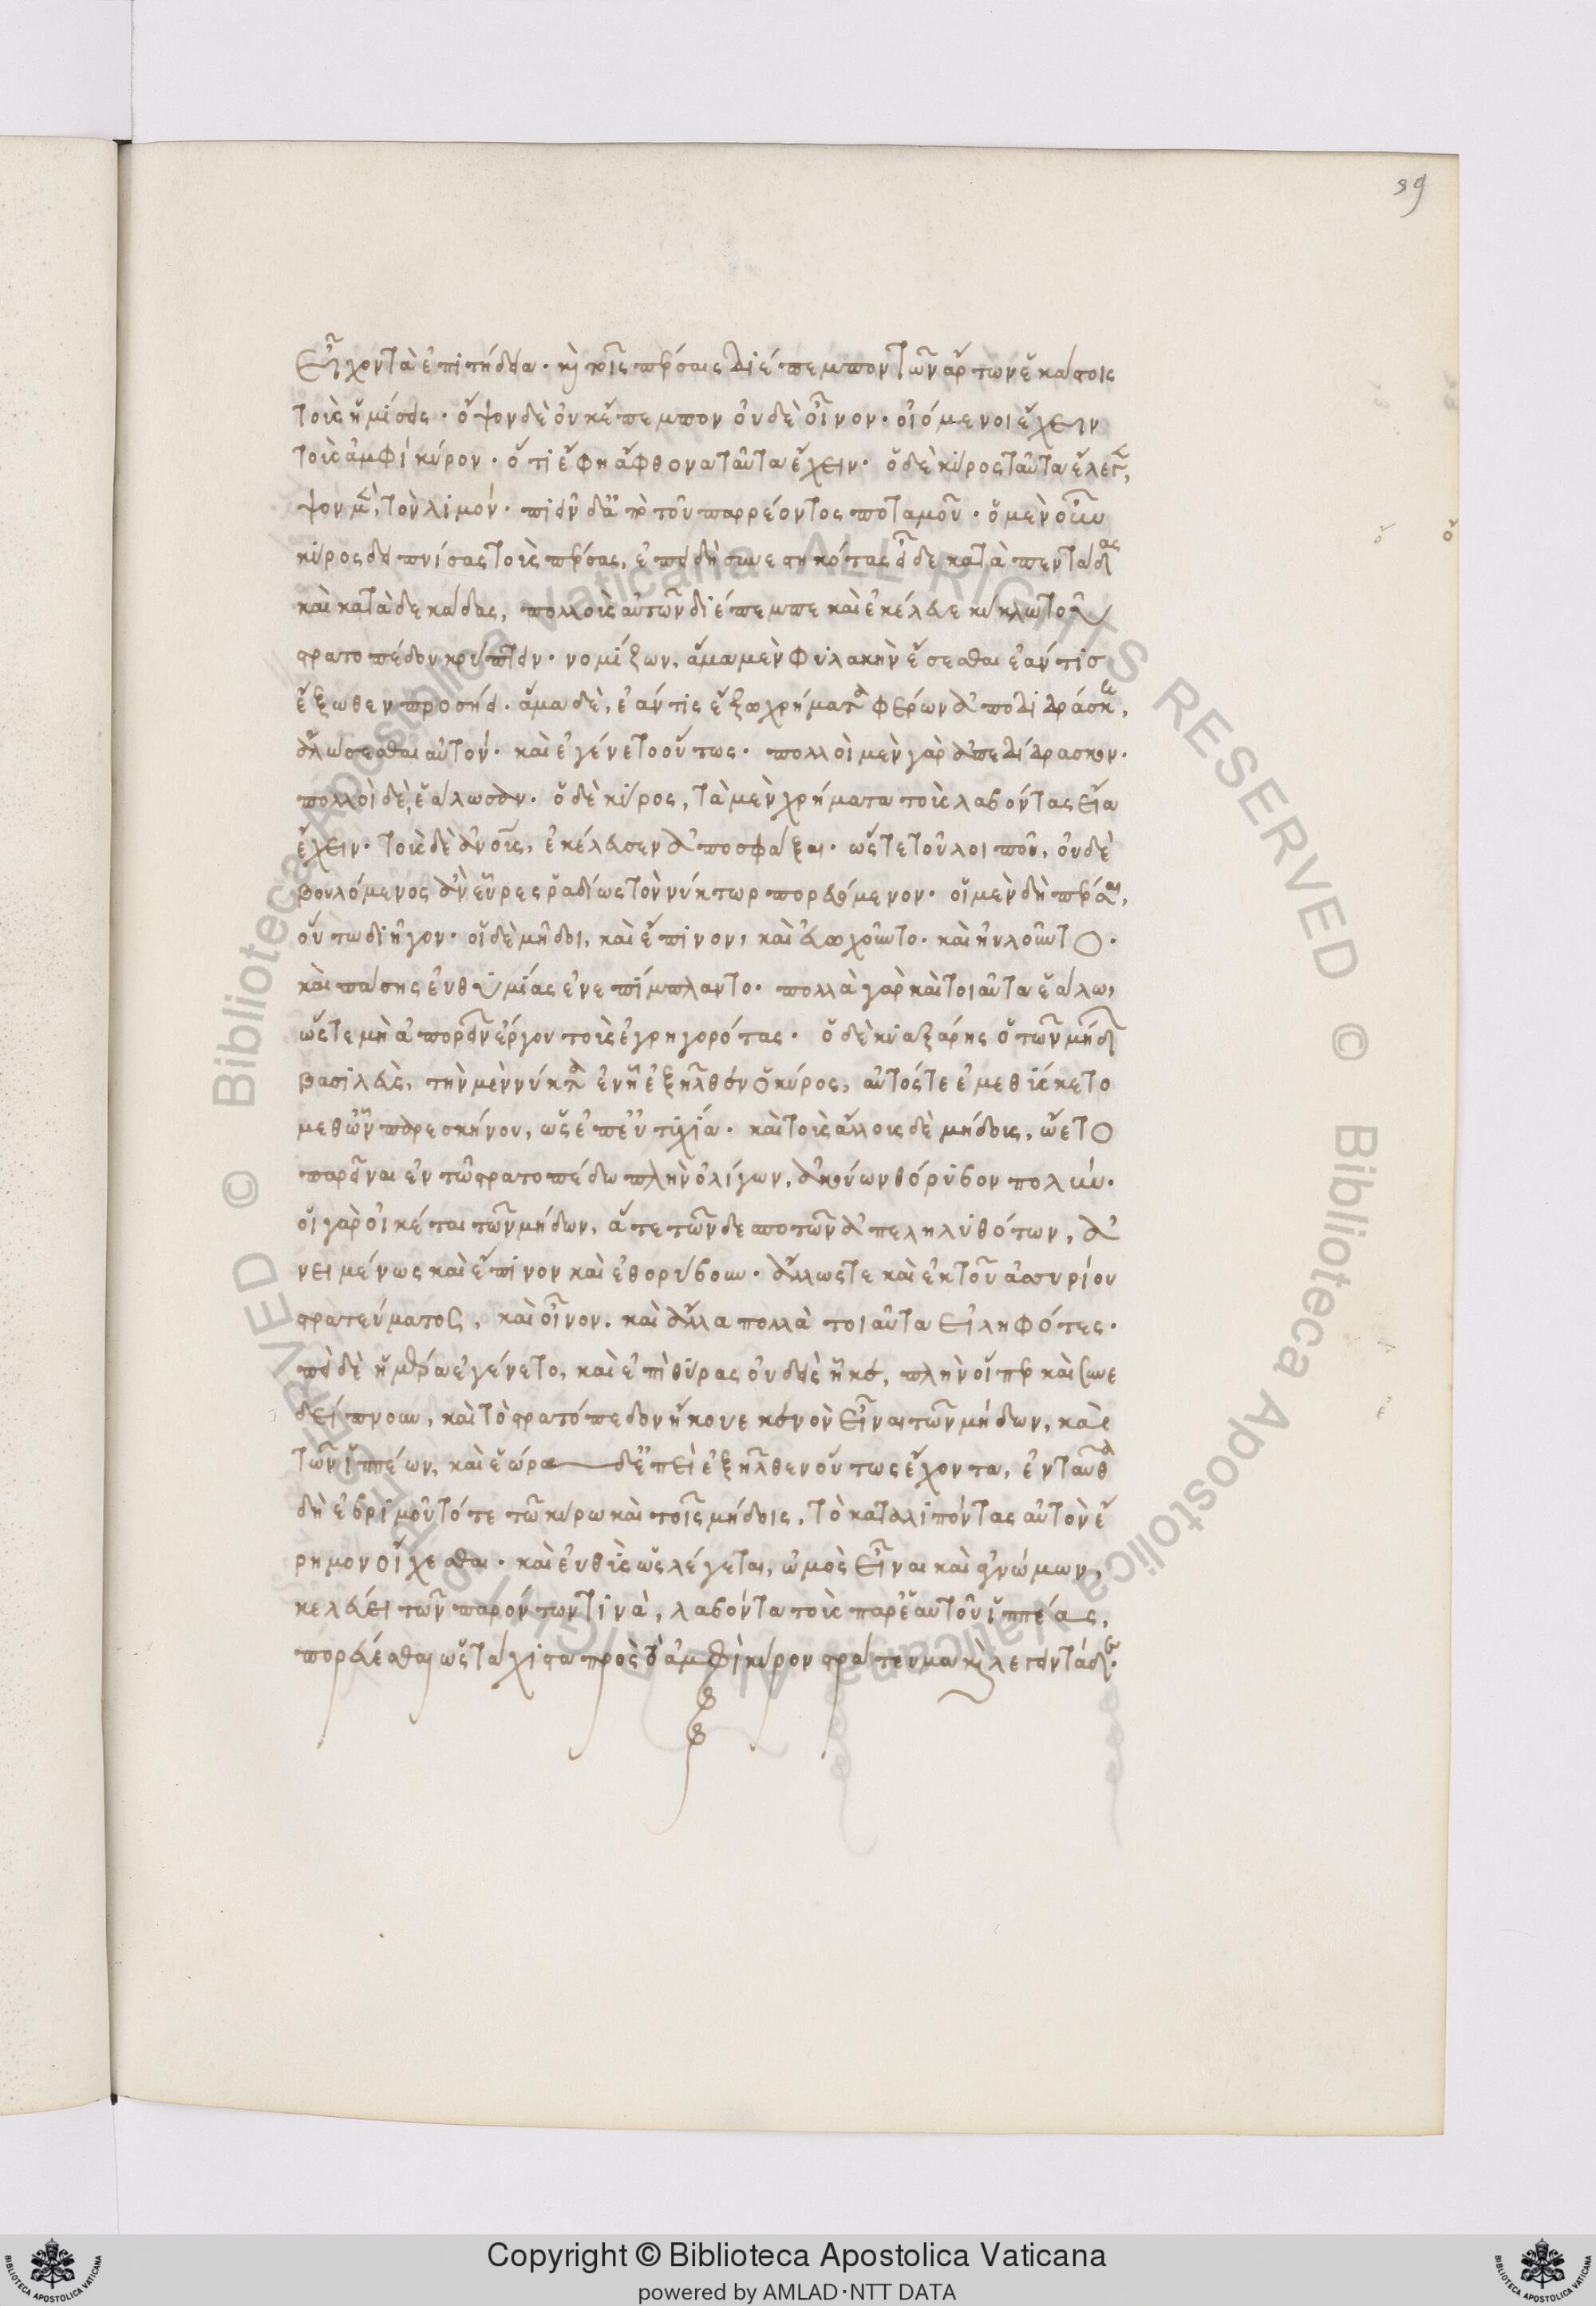 89
εἶχον τὰ ἐπιτήδεια. καὶ τοῖς πέρσαις διέπεμπον τῶν ἄρτων ἑκάστοις
τοὺς ἡμίσεις. ὄψον δὲ οὐκ ἔπεμπον οὐδὲ οἶνον. οἰόμενοι ἔχειν
τοὺς ἀμφὶ κύρον. ὅτι ἔφη ἄφθονα ταῦτα ἔχειν. ὁ δὲ κύρος ταῦτα ἔλεγεν,
ὄψον μὲν, τὸν λιμόν. πιεῖν δ' ἀπὸ τοῦ παρρέοντος ποταμοῦ. ὁ μὲν οὖν
κύρος δειπνίσας τοὺς πέρσας, ἐπειδὴ συνεσκότασε κατὰ πεντάδας
καὶ κατὰ δεκάδας, πολλοὺς αὐτῶν διέπεμπε καὶ ἐκέλευε κύκλω τοῦ
στρατοπέδου κρύπτειν. νομίζων, ἅμα μὲν φυλακὴν ἔσεσθαι ἐάν τις
ἔξωθεν προσίει. ἅμα δὲ, ἐάν τις ἔξω χρήματα φέρων ἀποδιδράσκη,
ἁλώσεσθαι αὐτόν. καὶ ἐγένετο οὕτως. πολλοὶ μὲν γὰρ ἀπεδίδρασκον.
πολλοὶ δὲ, ἑάλωσαν. ὁ δὲ κύρος, τὰ μὲν χρήματα τοὺς λαβόντας εἴα
ἔχειν. τοὺς δὲ ἀνοὺς, ἐκέλευσεν ἀποσφάξαι. ὥστε τοῦ λοιποῦ, οὐδὲ
βουλόμενος ἂν εὗρες ῥαδίως τὸν νύκτωρ πορευόμενον. οἱ μὲν δὴ πέρσαι,
οὕτω διῆγον. οἱ δὲ μῆδοι, καὶ ἔπινον, καὶ εὐωχοῦντο. καὶ ηὐλοῦντο.
καὶ πάσης εὐθυμίας ἐνεπίμπλαντο. πολλὰ γὰρ καὶ τοιαῦτα ἑάλω,
ὥστε μὴ ἀπορεῖν ἔργου τοὺς ἐγρηγορότας. ὁ δὲ κυαξάρης ὁ τῶν μήδων
βασιλεὺς, τὴν μὲν νύκτα ἐν ᾗ ἐξῆλθεν ὁ κύρος, αὐτός τε ἐμεθύσκετο
μεθ' ὧν παρεσκήνου, ὡς ἐπ' εὐτυχία. καὶ τοὺς ἄλλους δὲ μήδους, ᾤετο
παρεῖναι ἐν τῶ στρατοπέδω πλὴν ὀλίγων, ἀκούων θόρυβον πολύν.
οἱ γὰρ οἰκέται τῶν μήδων, ἅτε τῶν δεσποτῶν ἀπεληλυθότων, ἀ
νειμένως καὶ ἔπινον καὶ ἐθορύβουν. ἄλλως τε καὶ ἐκ τοῦ ἀσσυρίου
στρατεύματος, καὶ οἶνον. καὶ ἄλλα πολλὰ τοιαῦτα εἰληφότες.
ἐπεὶ δὲ ἡμέρα ἐγένετο, καὶ ἐπὶ θύρας οὐδεὶς ἧκε, πλὴν οἵπερ καὶ συνε
δείπνουν, καὶ τὸ στρατόπεδον ἤκουε κενὸν εἶναι τῶν μήδων, καὶ
τῶν ἱππέων, καὶ ἑώρα δ' ἐπεὶ ἐξῆλθεν οὕτως ἔχοντα, ἐνταῦθα
δὴ ἐβριμοῦτό τε τῶ κύρω καὶ τοῖς μήδοις, τὸ καταλιπόντας αὐτὸν ἔ
ρημον οἴχεσθαι. καὶ εὐθὺς ὡς λέγεται, ὠμὸς εἶναι καὶ ἀγνώμων,
κελεύει τῶν παρόντων τινὰ, λαβόντα τοὺς παρ' ἑαυτοῦ ἱππέας,
πορεύεσθαι ὡς τάχιστα πρὸς τὸ ἀμφὶ κύρον στράτευμα καὶ λέγειν τάδε.